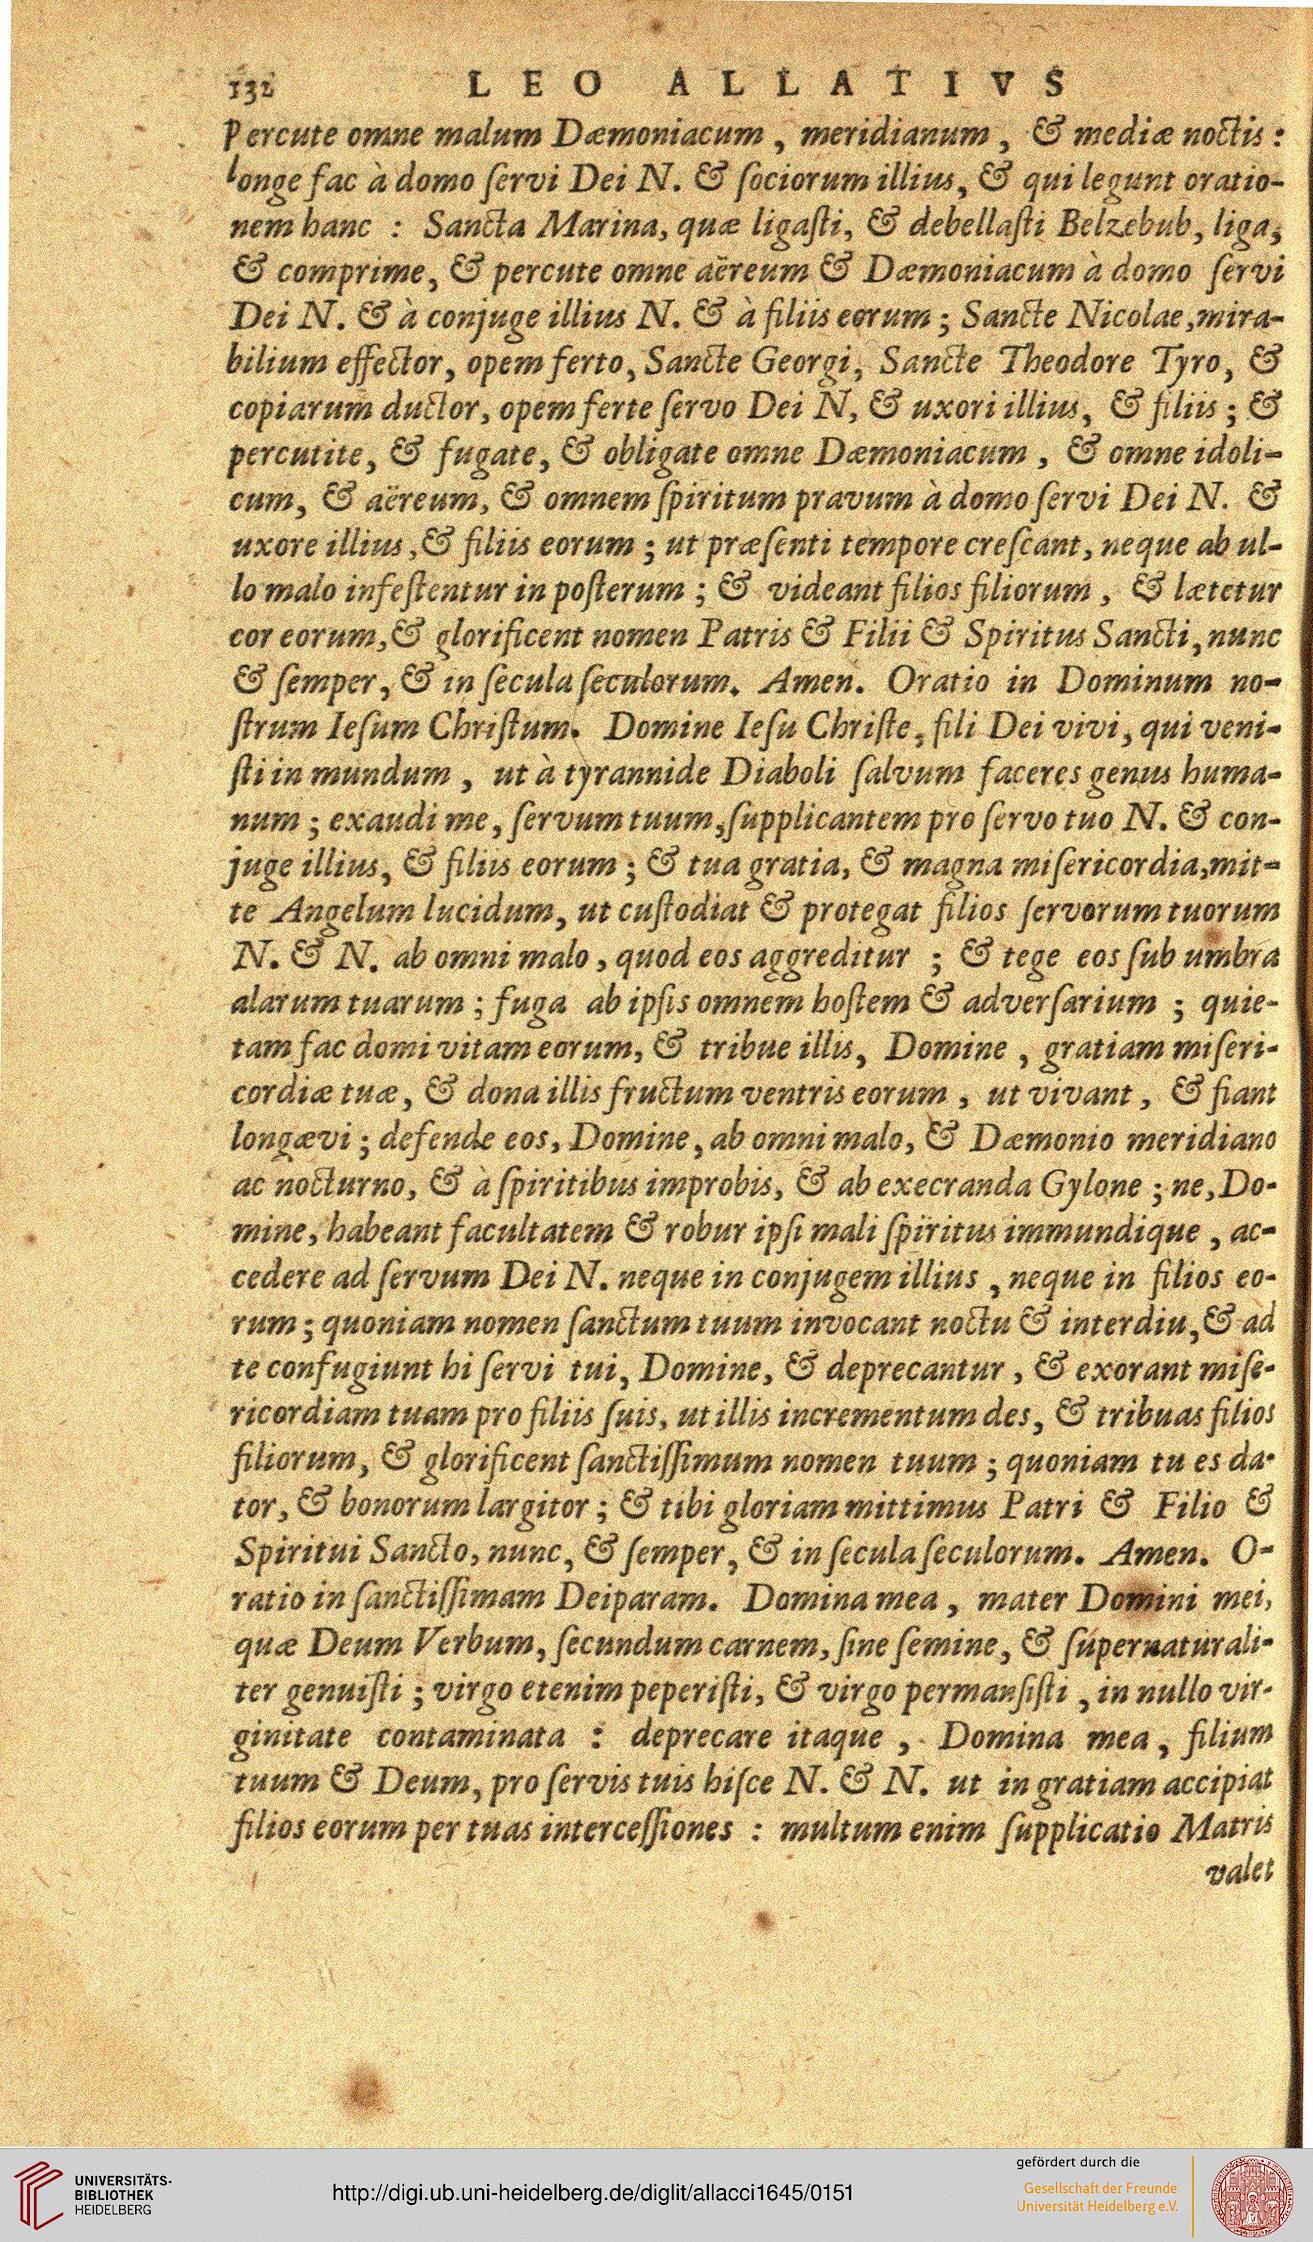 132 LEO ALLATIVS
Percute omne malum Dæmoniacum, meridianum, & mediæ noctis:
longe fac à domo ſervi Dei N. & ſociorum illius, & qui legunt oratio-
nem hanc : Sancta Marina, quæ ligaſti, & debellaſti Belzebub, liga,
& comprime, & percute omne aëreum & Dæmoniacum à domo ſervi
Dei N. & à conjuge illius N. & à filiis eorum; Sancte Nicolae, mira-
bilium effector, opem ferto, Sancte Georgi, Sancte Theodore Tyro, &
copiarum ductor, opem ferte ſervo Dei N, & uxori illius, & filiis; &
percutite, & fugate, & obligate omne Dæmoniacum, & omne idoli-
cum, & aëreum, & omnem ſpiritum pravum à domo ſervi Dei N. &
uxore illius, & filiis eorum; ut præſenti tempore creſcant, neque ab ul-
lo malo infeſtentur in poſterum; & videant filios filiorum, & lætetur
cor eorum, & glorificent nomen Patris & Filii & Spiritus Sancti, nunc
& ſemper, & in ſecula ſeculorum. Amen. Oratio in Dominum no-
ſtrum Ieſum Chriſtum. Domine Ieſu Chriſte, fili Dei vivi, qui veni-
ſti in mundum, ut à tyrannide Diaboli ſalvum faceres genus huma-
num; exaudi me, ſervum tuum, ſupplicantem pro ſervo tuo N. & con-
juge illius, & filiis eorum; & tua gratia, & magna miſericordia, mit-
te Angelum lucidum, ut cuſtodiat & protegat filios ſervorum tuorum
N. & N. ab omni malo, quod eos aggreditur ; & tege eos ſub umbra
alarum tuarum; fuga ab ipſis omnem hoſtem & adverſarium ; quie-
tam fac domi vitam eorum, & tribue illis, Domine, gratiam miſeri-
cordiæ tuæ, & dona illis fructum ventris eorum, ut vivant, & fiant
longævi; defende eos, Domine, ab omni malo, & Dæmonio meridiano
ac nocturno, & à ſpiritibus improbis, & ab execranda Gylone; ne, Do-
mine, habeant facultatem & robur ipſi mali ſpiritus immundique, ac-
cedere ad ſervum Dei N. neque in conjugem illius, neque in filios eo-
rum; quoniam nomen ſanctum tuum invocant noctu & interdiu, & ad
te confugiunt hi ſervi tui, Domine, & deprecantur, & exorant miſe-
ricordiam tuam pro filiis ſuis, ut illis incrementum des, & tribuas filios
filiorum, & glorificent ſanctiſſimum nomen tuum; quoniam tu es da-
tor, & bonorum largitor; & tibi gloriam mittimus Patri & Filio &
Spiritui Sancto, nunc, & ſemper, & in ſecula ſeculorum. Amen. O-
ratio in ſanctiſſimam Deiparam. Domina mea, mater Domini mei,
quæ Deum Verbum, ſecundum carnem, ſine ſemine, & ſupernaturali-
ter genuiſti; virgo etenim peperiſti, & virgo permanſiſti, in nullo vir-
ginitate contaminata : deprecare itaque, Domina mea, filium
tuum & Deum, pro ſervis tuis hiſce N. & N. ut in gratiam accipiat
filios eorum per tuas interceſſiones : multum enim ſupplicatio Matris
valet
UNIVERSITÄTS-
BIBLIOTHEK
HEIDELBERG
http://digi.ub.uni-heidelberg.de/diglit/allacci1645/0151
gefördert durch die
Gesellschaft der Freunde
Universität Heidelberg e.V.